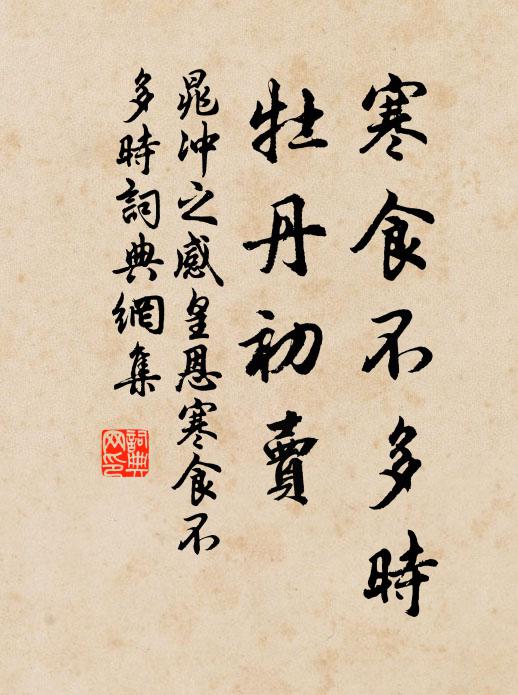 寒食不多時
牡丹初賣
晁冲之感皇恩寒食不
多時詞典網集
詞典
网印